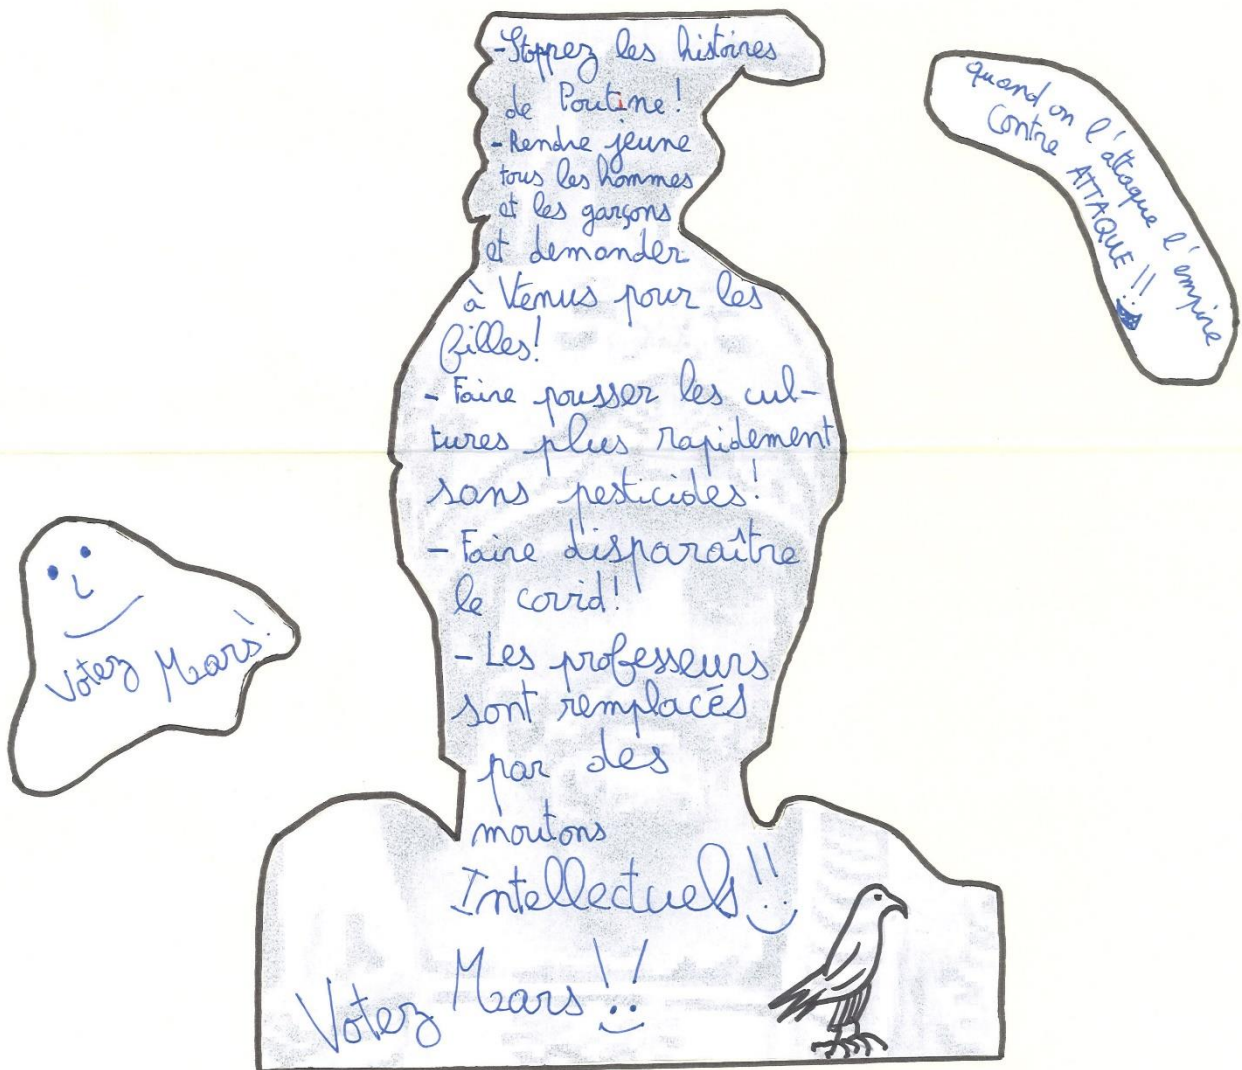 -Stoppez les histoires
de Poutine!
- Rendre jeune
tous les hommes
et les garçons
et demander
à Venus pour les
filles!
- Faire pousser les cul-
tures plus rapidement
sans pesticides!
- Faire disparaître
le covid!
- Les professeurs
sont remplacés
par des
moutons
Intellectuels!!
Votez Mars!!
quand on l'attaque l'empire
contre ATTAQUE!!
Votez Mars!